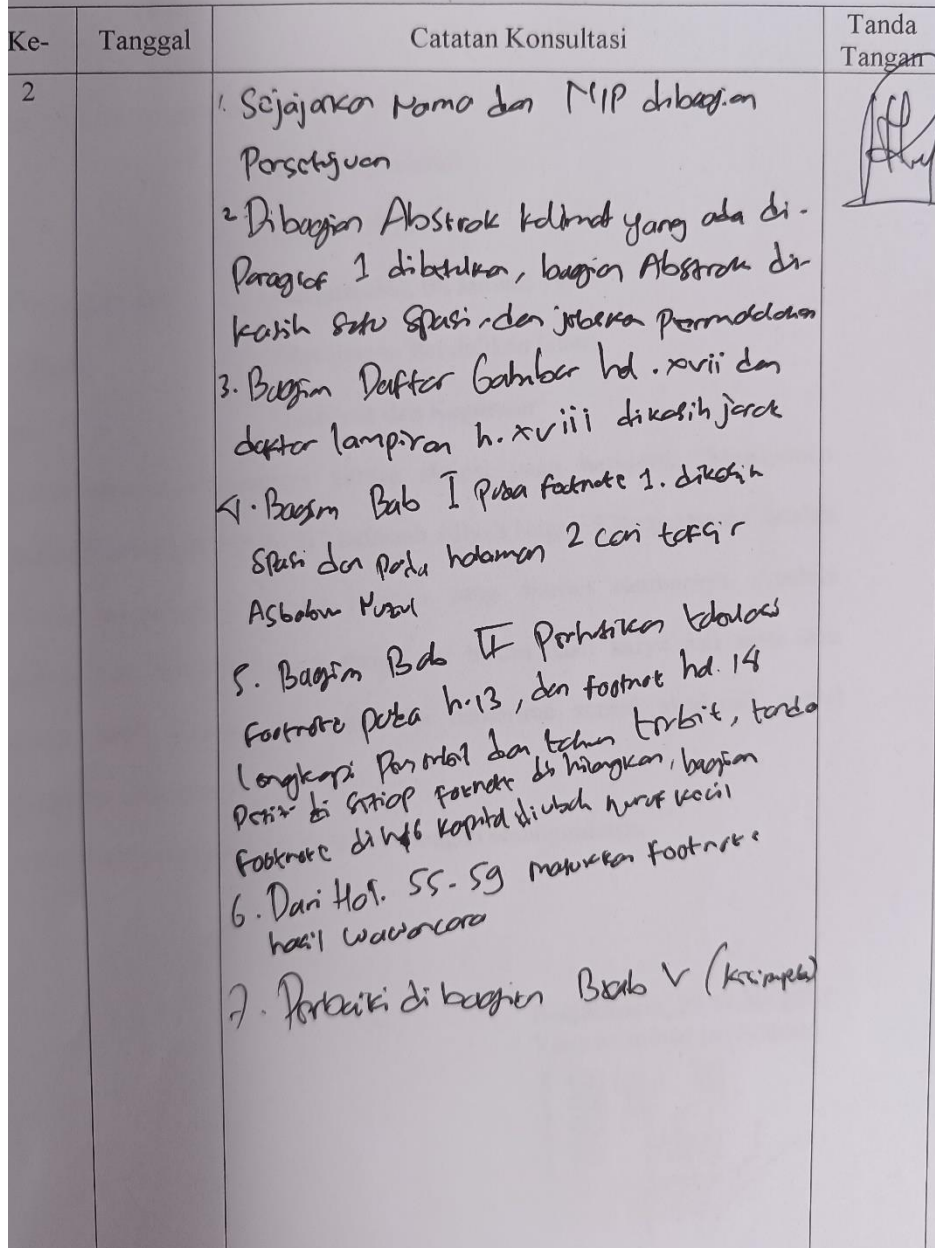 Ke-
Tanggal
Catatan Konsultasi
Tanda
Tangan
2
1. Sejajarkan Nama dan NIP dibagian
Persetujuan
2 Dibagian Abstrak kalimat yang ada di-
Paragraf 1 dibetulkan, bagian Abstrak di-
kasih satu spasi, dan jelaskan Permadalahan
3. Bagian Daftar Gambar hal. xvii dan
daftar lampiran h. xviii dikasih jarak
4. Bagian Bab I pada footnote 1. dikasih
Spasi dan pada halaman 2 cari tafsir
Asbabun Nuzul
5. Bagian Bab II Perhatikan
footnote pada h.13, dan footnot hal. 14
lengkapi Penerbit dan tahun terbit, tanda
Petik di setiap footnote di hilangkan, bagian
footnote di kapital diubah huruf kecil
6. Dari Hal. 55-59 masukkan footnote
hasil wawancara
7. Perbaiki dibagian Baab V (kesimpulan)